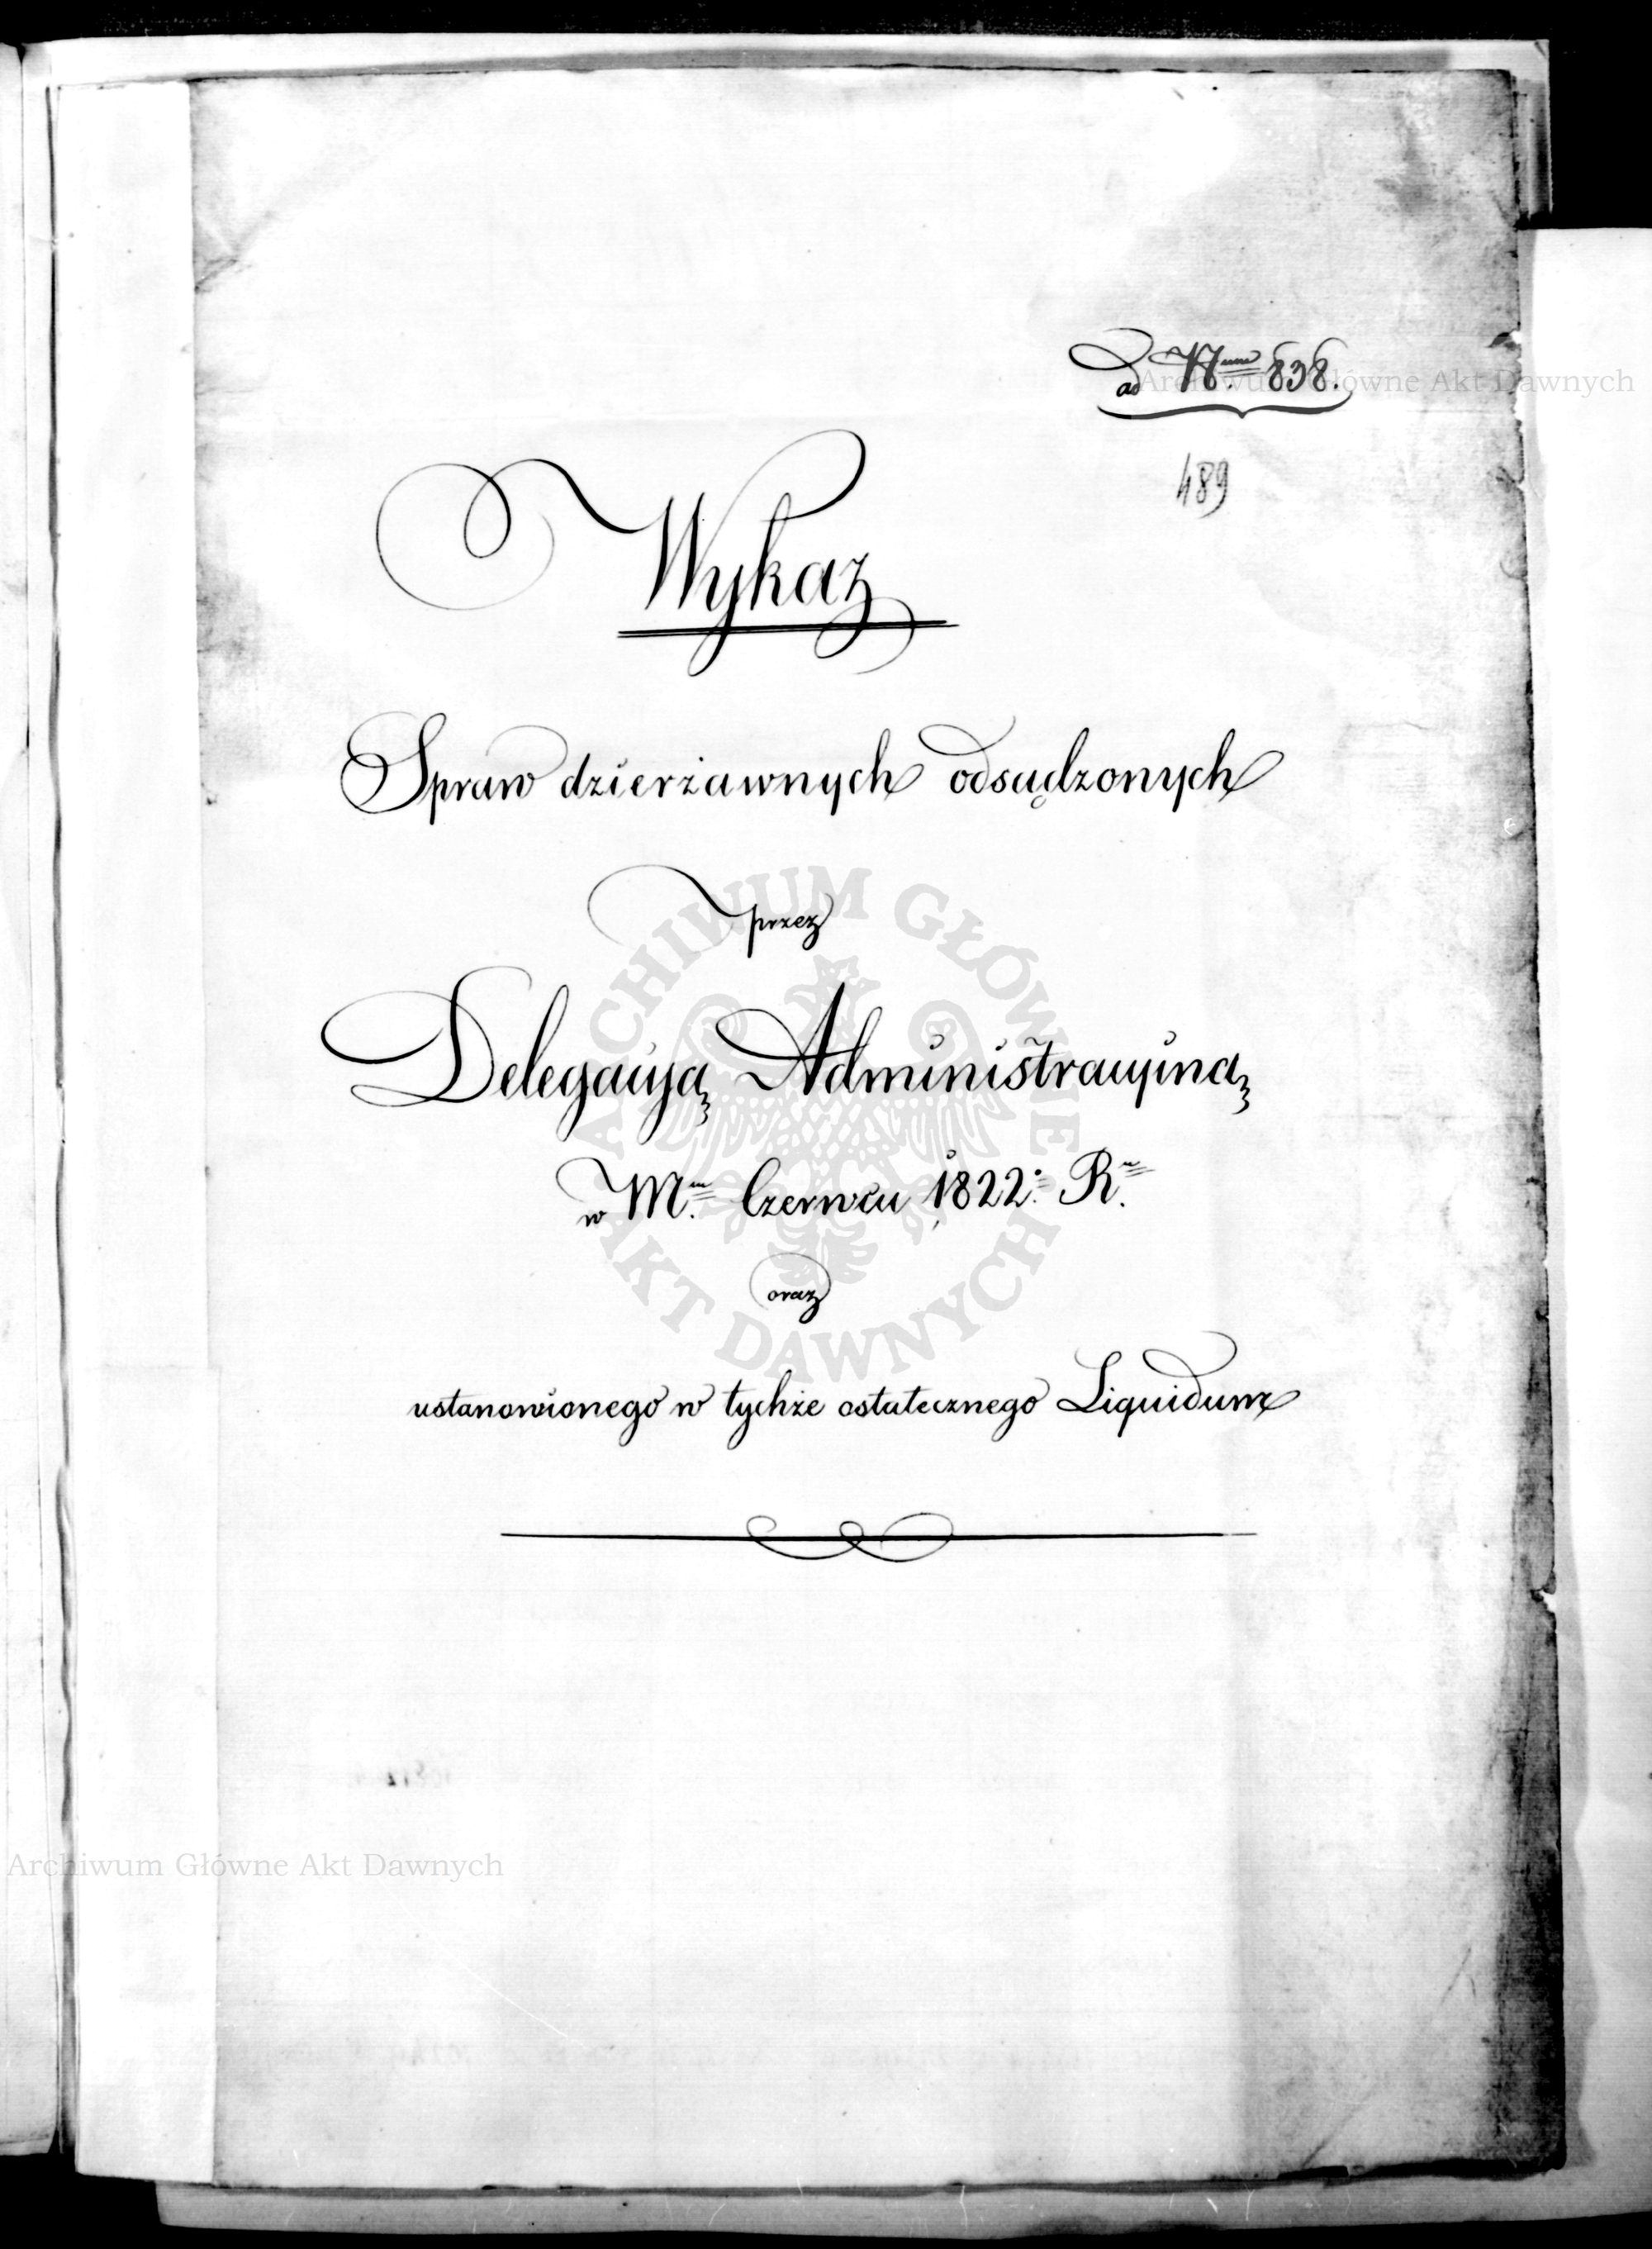 ad Nrum 838.
Archiwum Główne Akt Dawnych
489
Wykaz
Spraw dzierżawnych odsądzonych
przez
Delegacyją Administracyiną
w Mcu Czerwcu 1822. R.
oraz
ustanowionego w tychże ostatecznego Liquidum
ARCHIWUM GŁÓWNE AKT DAWNYCH
Archiwum Główne Akt Dawnych